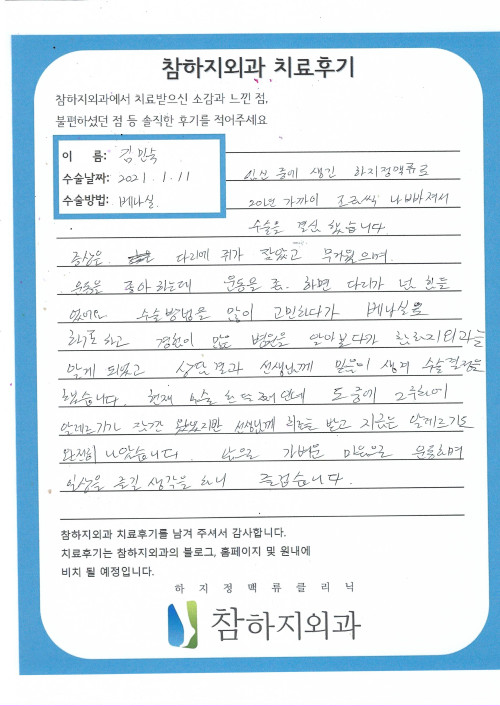 참하지외과 치료후기
참하지외과에서 치료받으신 소감과 느낀 점,
불편하셨던 점 등 솔직한 후기를 적어주세요
이 름: 김민숙
수술날짜: 2021. 1. 11
수술방법: 베나실.
임신 중에 생긴 하지정맥류로
20년 가까이 조금씩 나빠져서
수술을 결심 했습니다
증상은 다리에 쥐가 잘났고 무거웠으며.
운동을 좋아하는데 운동을 좀 하면 다리가 넘 힘들
었어요 수술방법을 많이 고민하다가 베나실로
하고 경험이 많은 병원을 알아보다가 참하지외과를
알게 되었고 상담결과 선생님께 믿음이 생겨 수술결정을
했습니다. 현재 수술 한 달 도중에 2주차에
알레르기가 잠깐 왔었지만 선생님께 치료를 받고 지금은 알레르기도
완전히 나았습니다. 앞으로 가벼운 마음으로 운동하며
일상을 즐길 생각을 하니 즐겁습니다.
참하지외과 치료후기를 남겨 주셔서 감사합니다.
치료후기는 참하지외과의 블로그, 홈페이지 및 원내에
비치 될 예정입니다.
하지정맥류클리닉
참하지외과